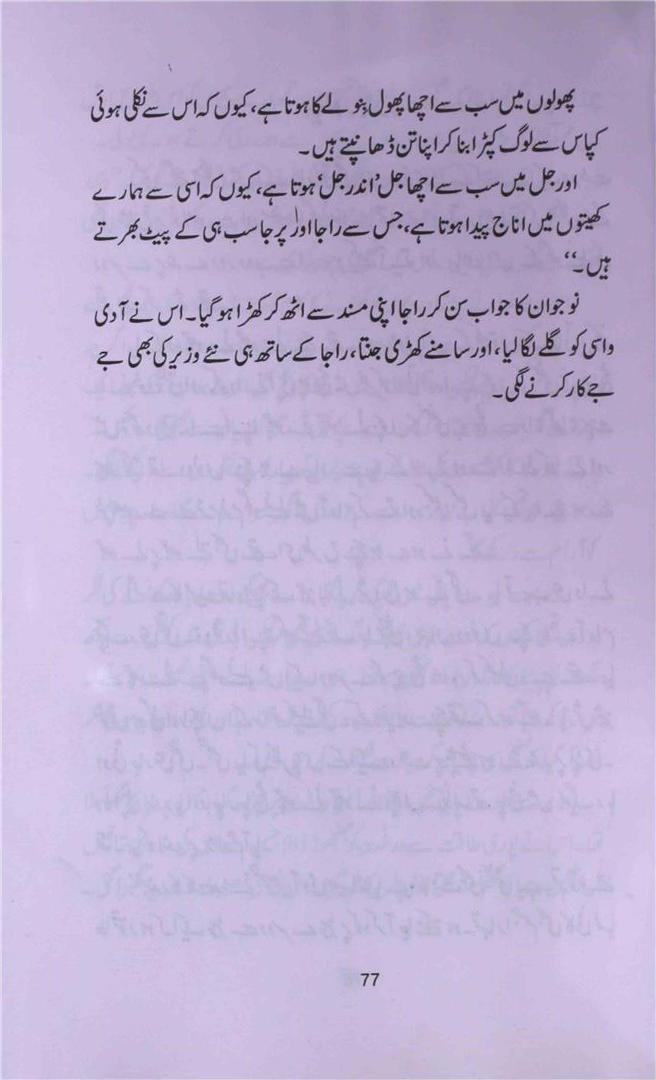 پھولوں میں سب سے اچھا پھول بنولے کا ہوتا ہے، کیوں کہ اس سے نکلی ہوئی
کپاس سے لوگ کپڑا بنا کر اپنا تن ڈھانپتے ہیں۔
اور جل میں سب سے اچھا جل 'اندر جل' ہوتا ہے، کیوں کہ اسی سے ہمارے
کھیتوں میں اناج پیدا ہوتا ہے، جس سے راجا اور پرجا سب ہی کے پیٹ بھرتے
ہیں۔‘‘
نوجوان کا جواب سن کر راجا اپنی مسند سے اٹھ کر کھڑا ہو گیا۔ اس نے آدی
واسی کو گلے لگا لیا، اور سامنے کھڑی جنتا، راجا کے ساتھ ہی نئے وزیر کی بھی جے
جے کار کرنے لگی۔
77